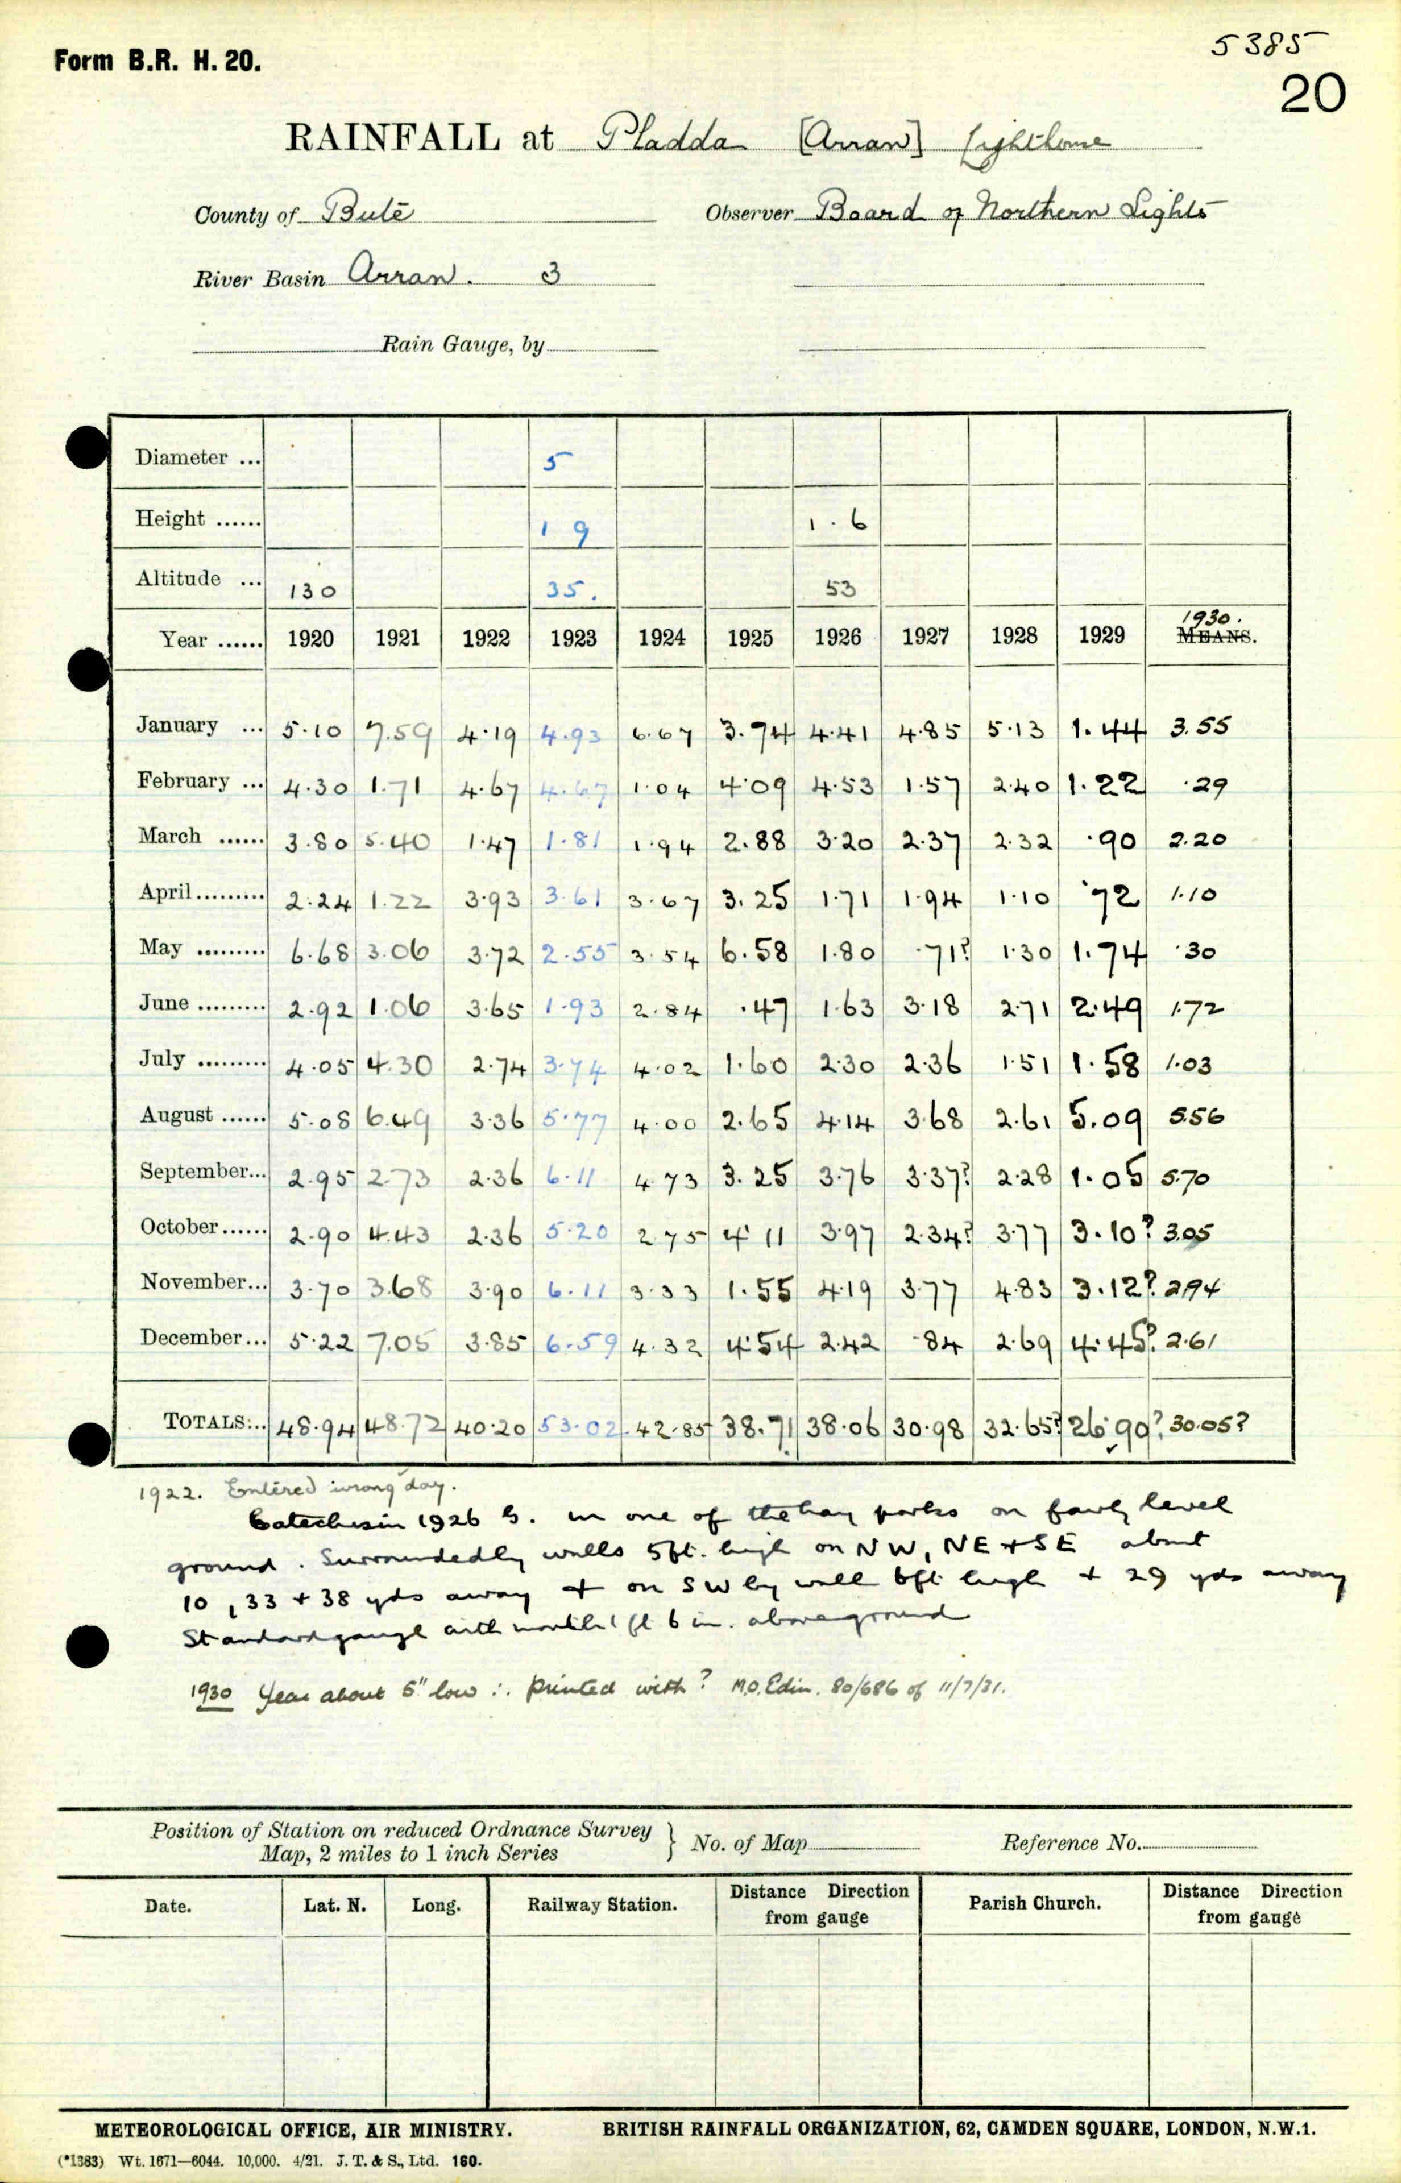 Form B.R. H. 20.
5385
20
RAINFALL at Pladda [Arran] Lighthouse
County of Bute Observer Board of Northern Lights
River Basin Arran. 3
Rain Gauge, by
Diameter ... 5
Height ...... 1 9 1.6
Altitude ... 130 35. 53
Year ...... 1920 1921 1922 1923 1924 1925 1926 1927 1928 1929 1930. MEANS.
January ... 5.10 7.59 4.19 4.93 6.67 3.74 4.41 4.85 5.13 1.44 3.55
February ... 4.30 1.71 4.67 4.67 1.04 4.09 4.53 1.57 2.40 1.22 .29
March ...... 3.80 5.40 1.47 1.81 1.94 2.88 3.20 2.37 2.32 .90 2.20
April ......... 2.24 1.22 3.93 3.61 3.67 3.25 1.71 1.94 1.10 .72 1.10
May ......... 6.68 3.06 3.72 2.55 3.54 6.58 1.80 .71? 1.30 1.74 .30
June ......... 2.92 1.06 3.65 1.93 2.84 .47 1.63 3.18 2.71 2.49 1.72
July ......... 4.05 4.30 2.74 3.74 4.02 1.60 2.30 2.36 1.51 1.58 1.03
August ...... 5.08 6.49 3.36 5.77 4.00 2.65 4.14 3.68 2.61 5.09 5.56
September... 2.95 2.73 2.36 6.11 4.73 3.25 3.76 3.37? 2.28 1.05 5.70
October...... 2.90 4.43 2.36 5.20 2.75 4.11 3.97 2.34? 3.77 3.10? 3.05
November... 3.70 3.68 3.90 6.11 3.33 1.55 4.19 3.77 4.83 3.12? 2.94
December... 5.22 7.05 3.85 6.59 4.32 4.54 2.42 .84 2.69 4.45? 2.61
TOTALS... 48.94 48.72 40.20 53.02 42.85 38.71 38.06 30.98 32.65? 26.90? 30.05?
1922. Entered wrong day.
1926 G. in one of the hay parks on fairly level
ground. Surrounded by walls 5ft. high on NW, NE + SE about
10, 33 + 38 yds away + on SW by wall 6ft high + 29 yds away
Standard gauge with mouth 1 ft 6 in. above ground
1930 Year about 5" low ∴ printed with ? M.O. Edin. 80/686 of 11/7/31.
Position of Station on reduced Ordnance Survey
Map, 2 miles to 1 inch Series } No. of Map Reference No.
Date. Lat. N. Long. Railway Station. Distance Direction from gauge Parish Church. Distance Direction from gauge
METEOROLOGICAL OFFICE, AIR MINISTRY. BRITISH RAINFALL ORGANIZATION, 62, CAMDEN SQUARE, LONDON, N.W.1.
(*1383) Wt. 1671—6044. 10,000. 4/21. J. T. & S., Ltd. 160.